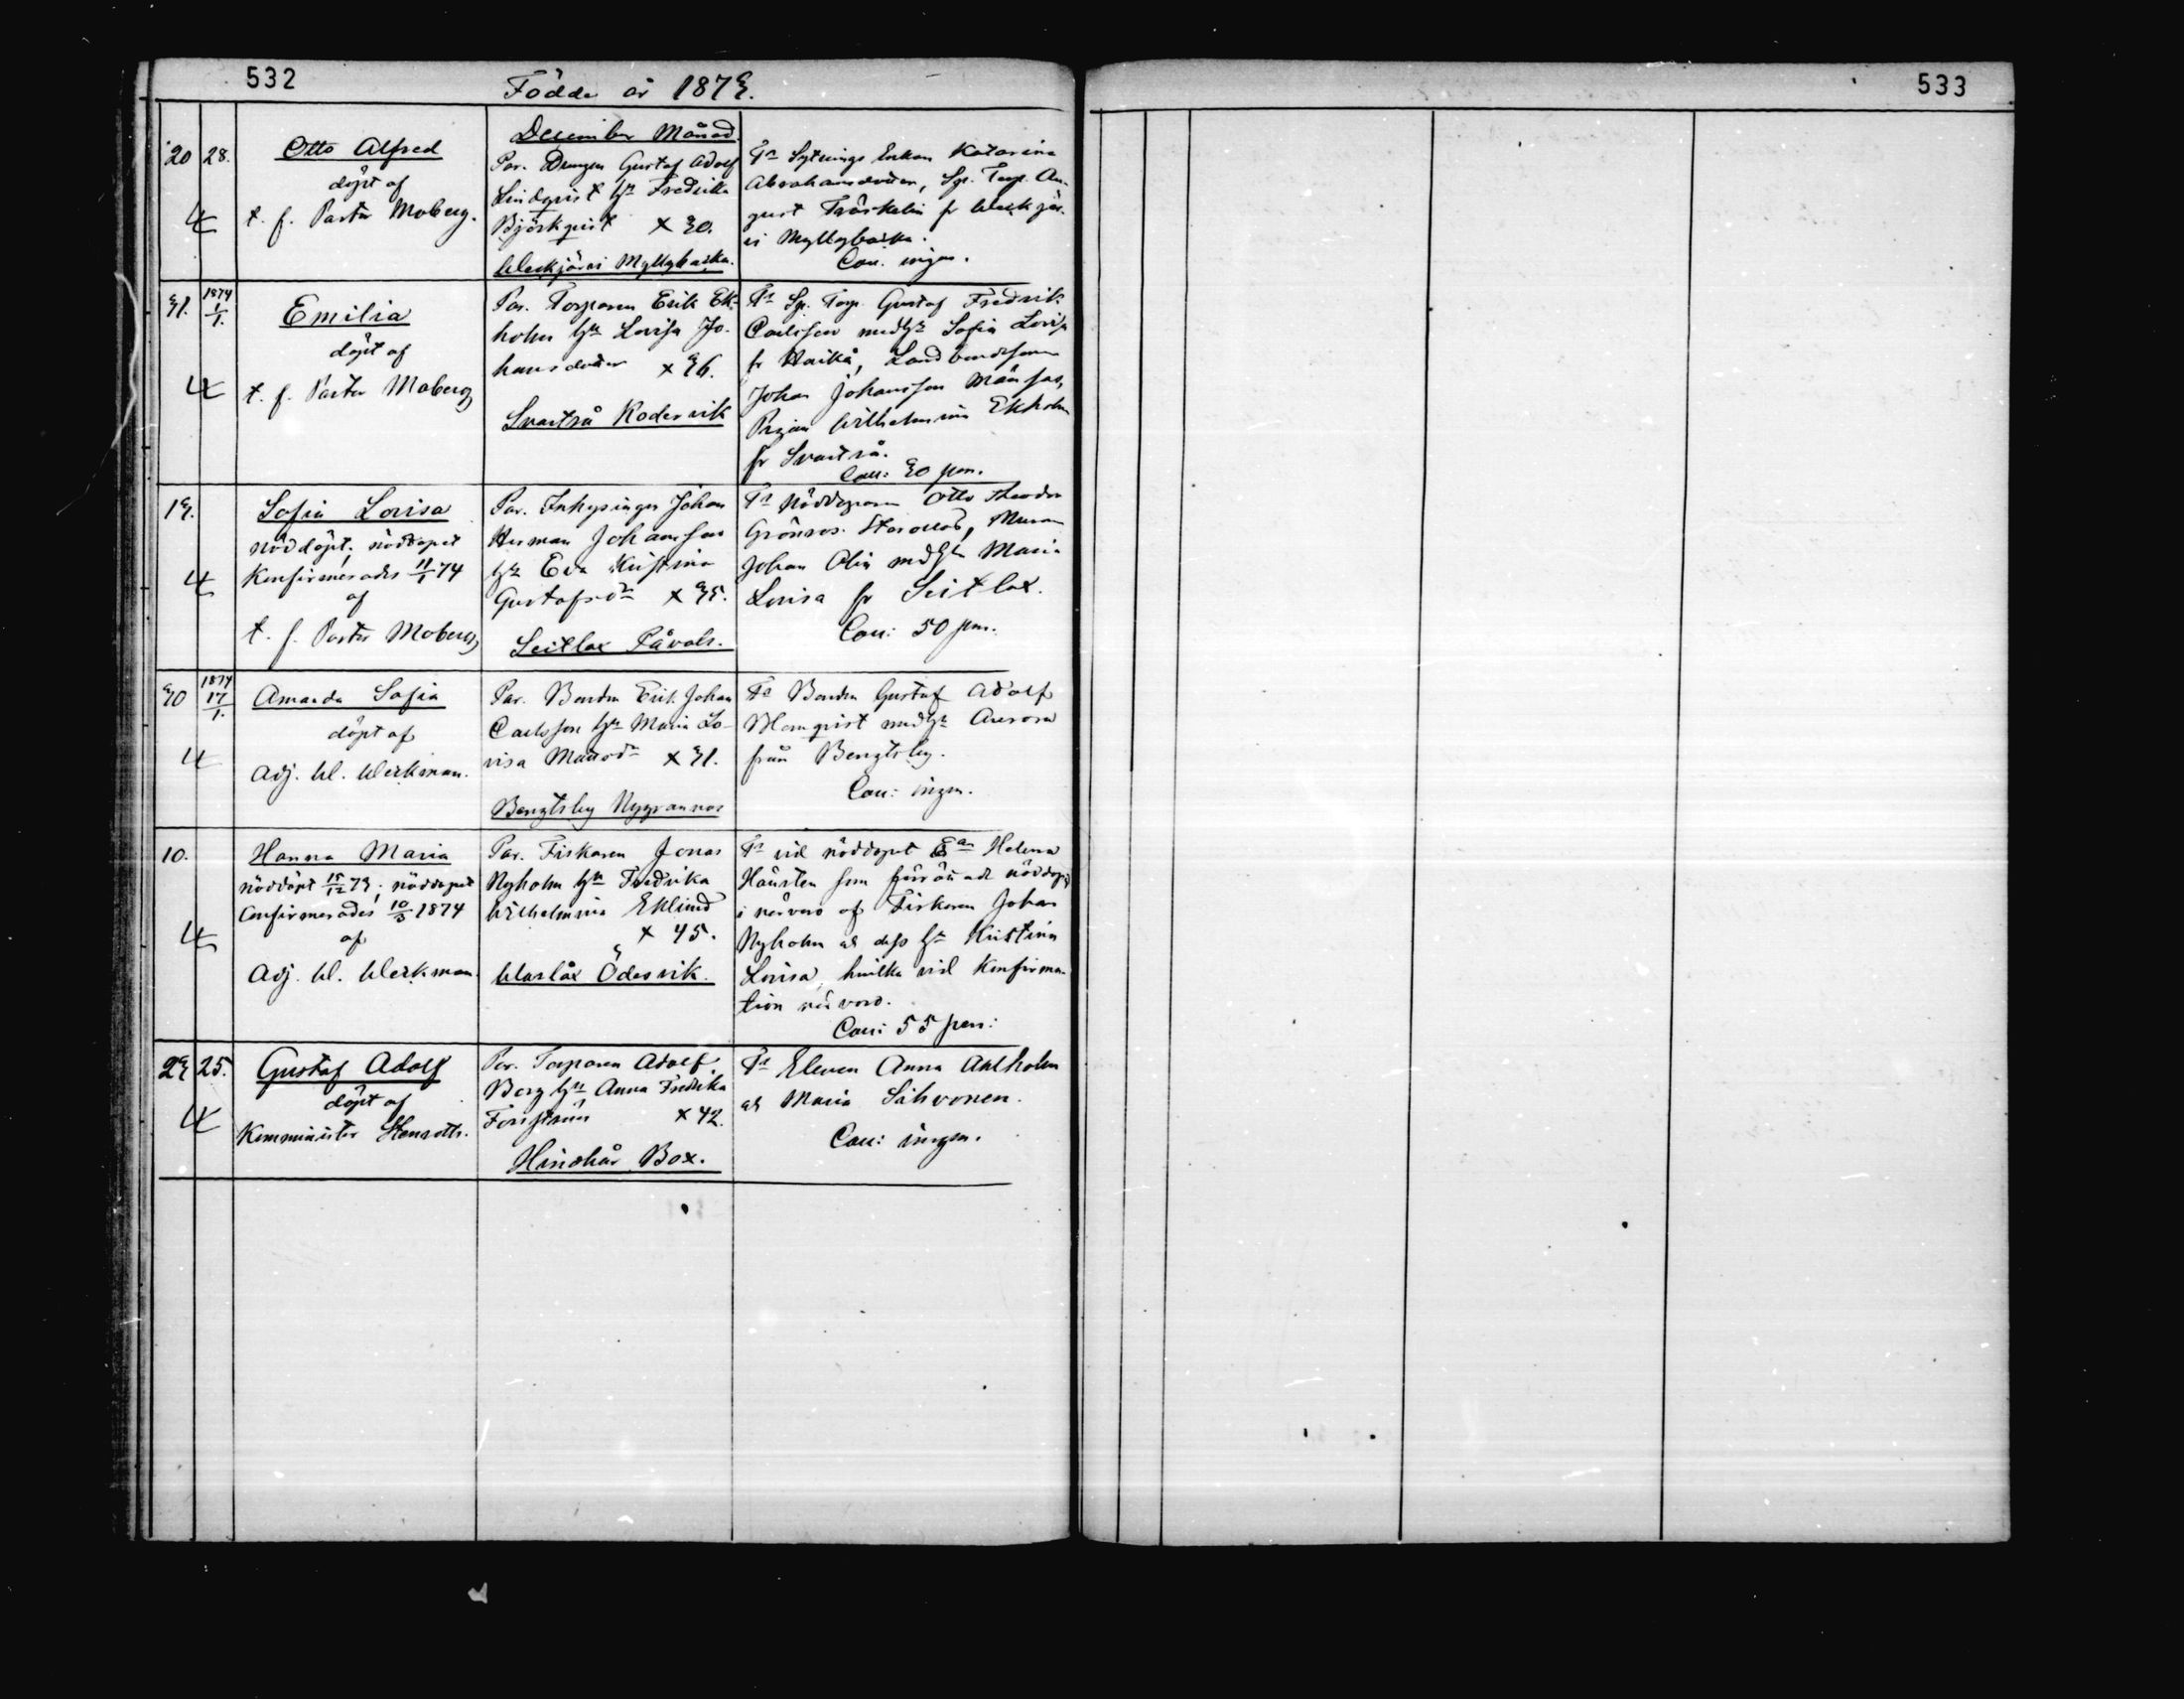 532
Födde år 1873.
December Månad.
20 28.
Otto Alfred
döpt af
t. f. Pastor Moberg.
Par. Drengen Gustaf Adolf
Lindqvist hu Fredrika
Björkqvist x 30.
Weckjärvi Myllybacka.
Fr Sytnings Enkan Katarina
Abrahamsdotter, Sp. Torp. Au-
gust Träskelin fr Weckjär-
vi Myllybacka.
Cau. ingen.
31. 1874 1/1.
Emilia
döpt af
t. f. Pastor Moberg
Par. Torparen Erik Ek-
holm hu Lovisa Jo-
hansdotter x 36.
Svartså Rodervik
Fr Sp. Torp. Gustaf Fredrik
Carlsson med hu Sofia Lovisa
fr Haikå, Landbondsonen
Johan Johansson Månsas,
Pigan Wilhelmina Ekholm
fr Svartså.
Cau: 30 pen.
13.
Sofia Lovisa
nöddöpt; nöddopet
Konfirmerades 11/1 74
af
t. f. Pastor Moberg
Par. Inhysingen Johan
Herman Johansson
hu Eva Kristina
Gustafsdr x 35.
Seitlax Påvals.
Fr Nöddoparen Otto Theodor
Grönros, Muraren
Johan Olin med hu Maria
Lovisa fr Seitlax.
Cau: 50 pen.
30 1874 17/1.
Amanda Sofia
döpt af
Adj. W. Werkman.
Par. Bonden Erik Johan
Carlsson hu Maria Lo-
visa Matsdr x 31.
Bengtsby Nygrannas
Fr Bonden Gustaf Adolf
Blomqvist med hu Aurora
från Bengtsby.
Cau: ingen.
10.
Hanna Maria
nöddöpt 15/12 73; nöddopet
Confirmerades 10/3 1874
af
Adj. W. Werkman.
Par. Fiskaren Jonas
Nyholm hu Fredrika
Wilhelmina Eklund
x 45.
Warlax Ödesvik.
Fr vid nöddopet Ean Helena
Hausten som förrättade nöddopet
i närvaro af Fiskaren Johan
Nyholm och dess hu Kristina
Lovisa, hvilka vid Konfirma-
tion närvoro.
Cau: 55 pen:
23 25.
Gustaf Adolf
döpt af
Komminister Stenroth.
Par. Torparen Adolf
Borg hu Anna Fredrika
Forsström x 42.
Hindhår Box.
Fr Eleven Anna Ahlholm
och Maria Sihvonen.
Cau: ingen.
533